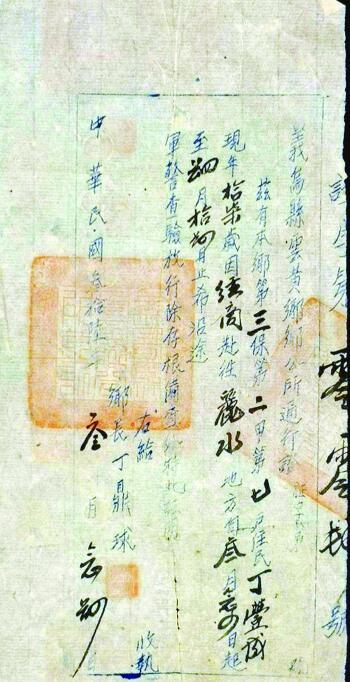 義烏縣雲黃鄉鄉公所通行證
茲有本鄉第三保第二甲第七戶住民丁豐
現年拾柒歲因經商赴往麗水地方自叁月念四日起
至四月拾四日止希沿途
軍警查驗放行除存根備查外特此證明
右給
收執
鄉長丁鼎球
中華民國叁拾陸年叁月念四日
號